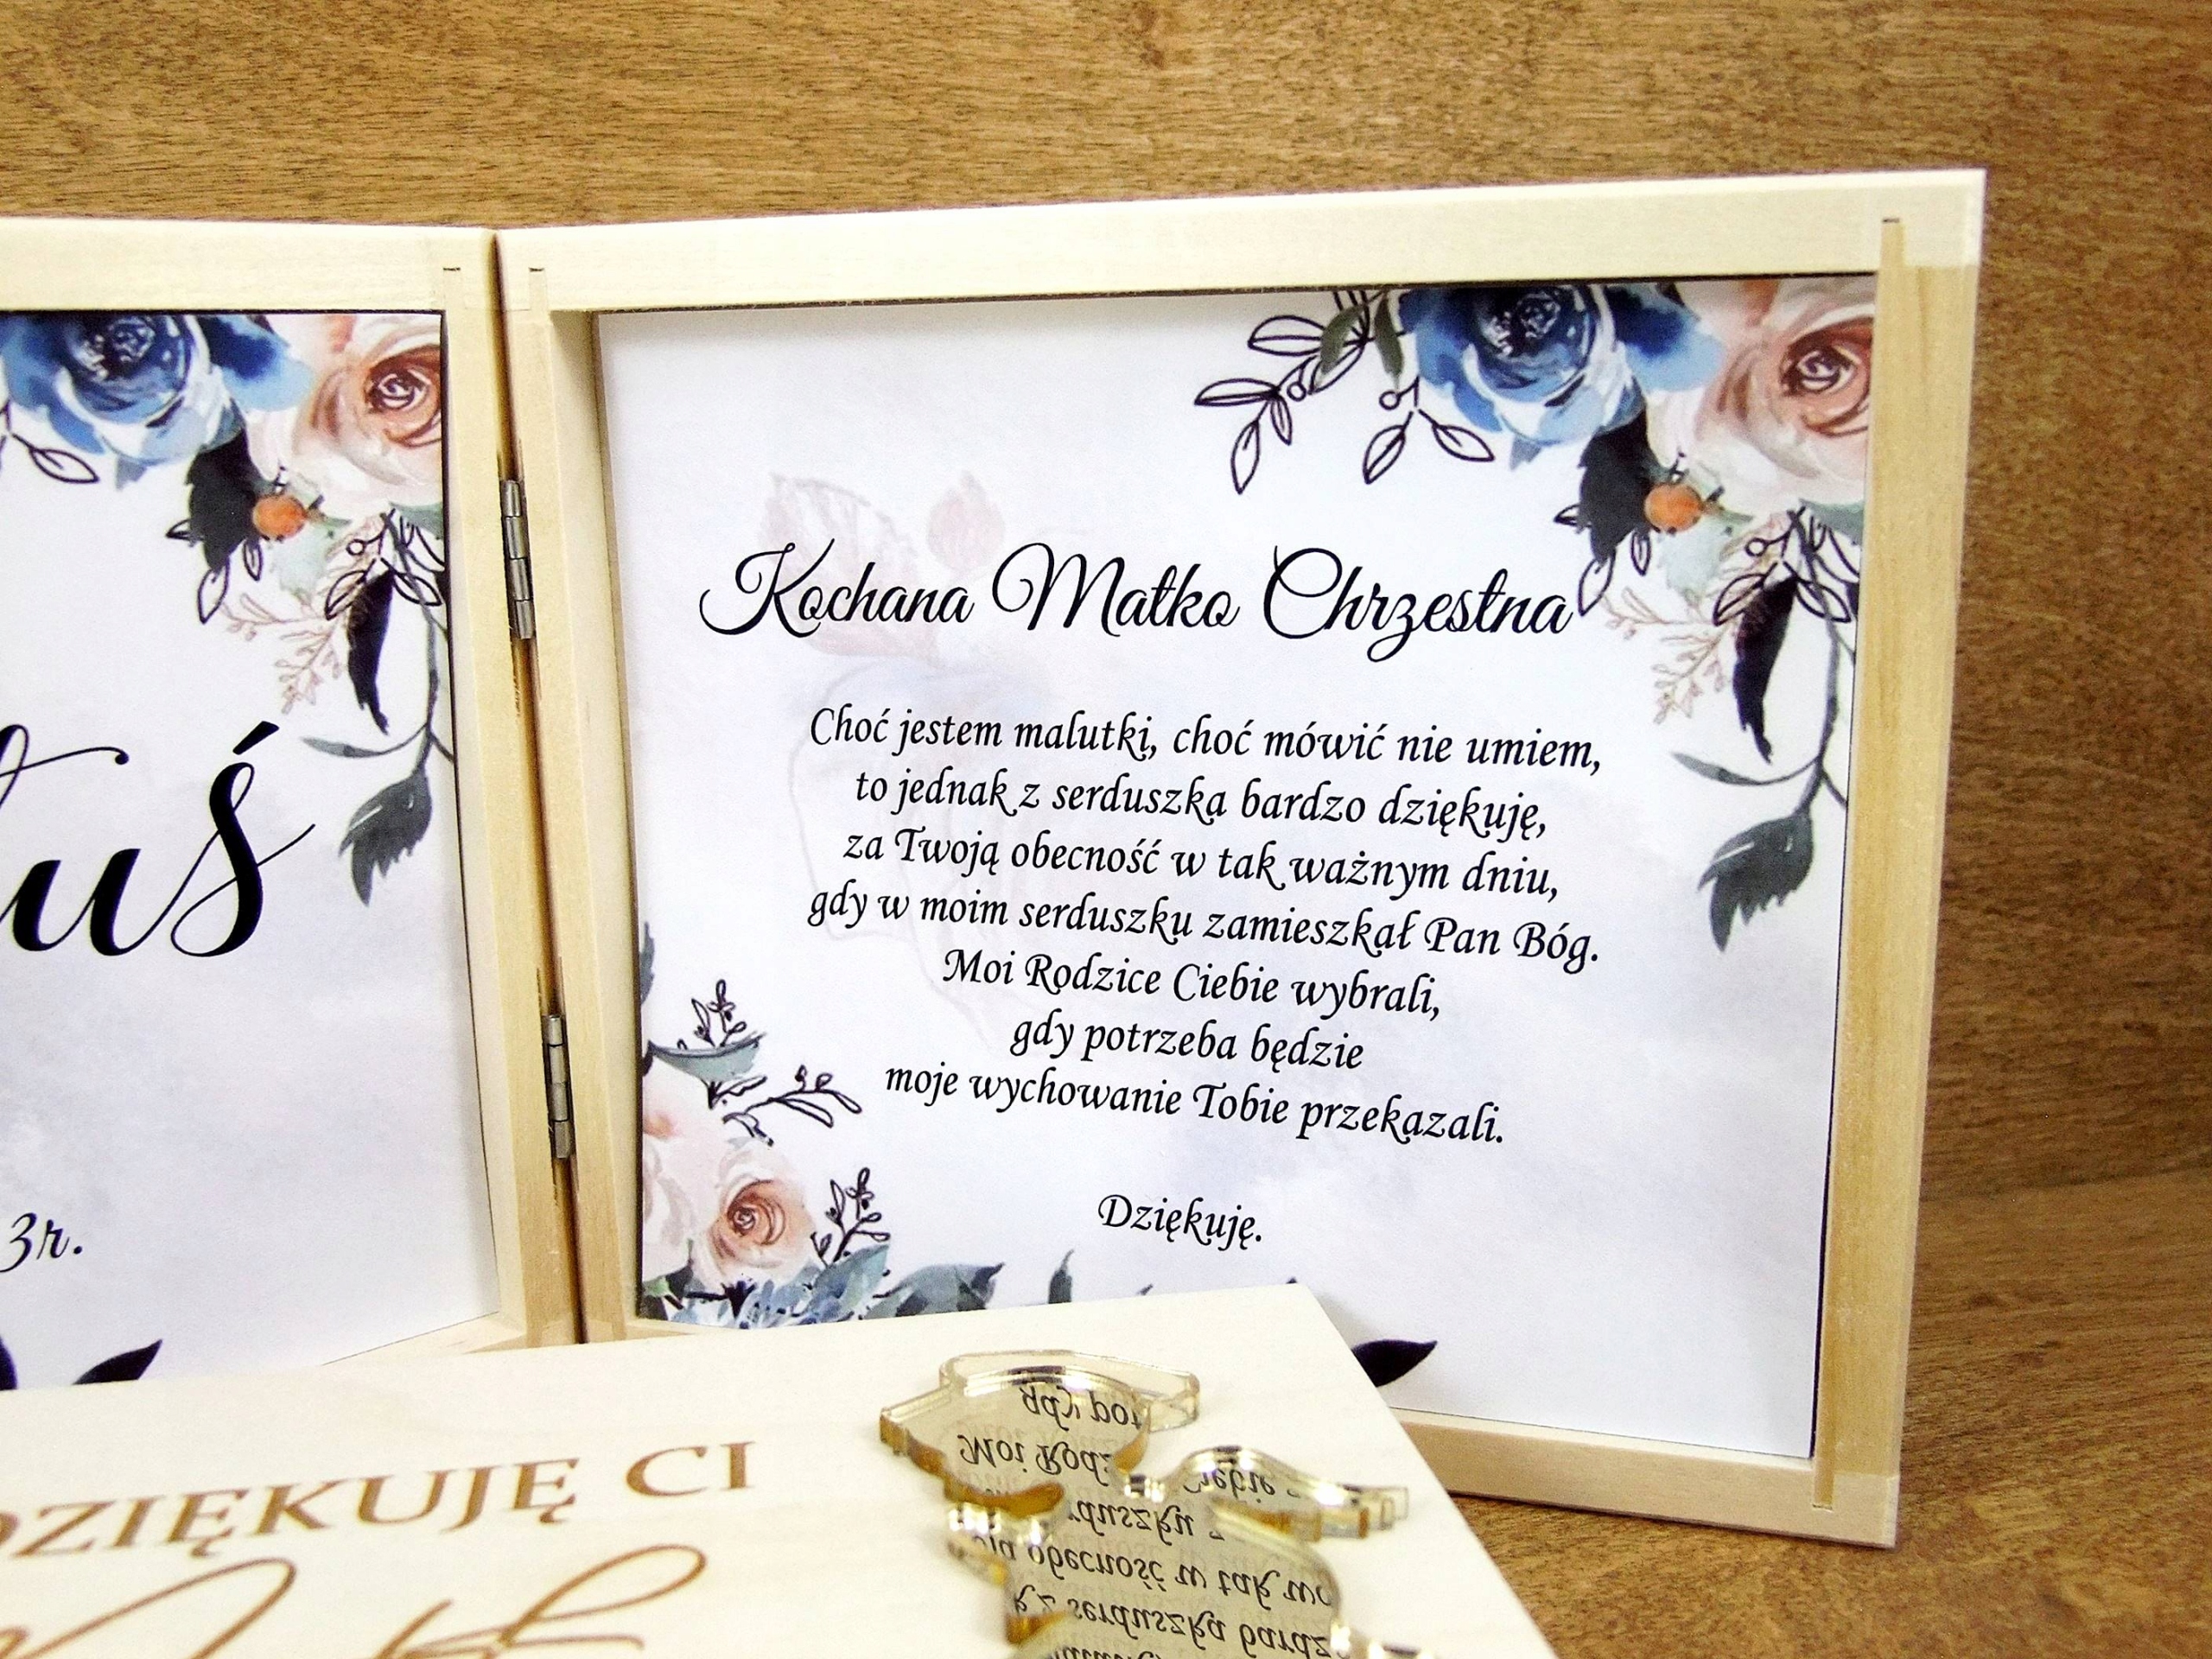 3r.
Kochana Matko Chrzestna
Choć jestem malutki, choć mówić nie umiem,
to jednak z serduszka bardzo dziękuję,
za Twoją obecność w tak ważnym dniu,
gdy w moim serduszku zamieszkał Pan Bóg.
Moi Rodzice Ciebie wybrali,
gdy potrzeba będzie
moje wychowanie Tobie przekazali.
Dziękuję.
DZIĘKUJĘ CI